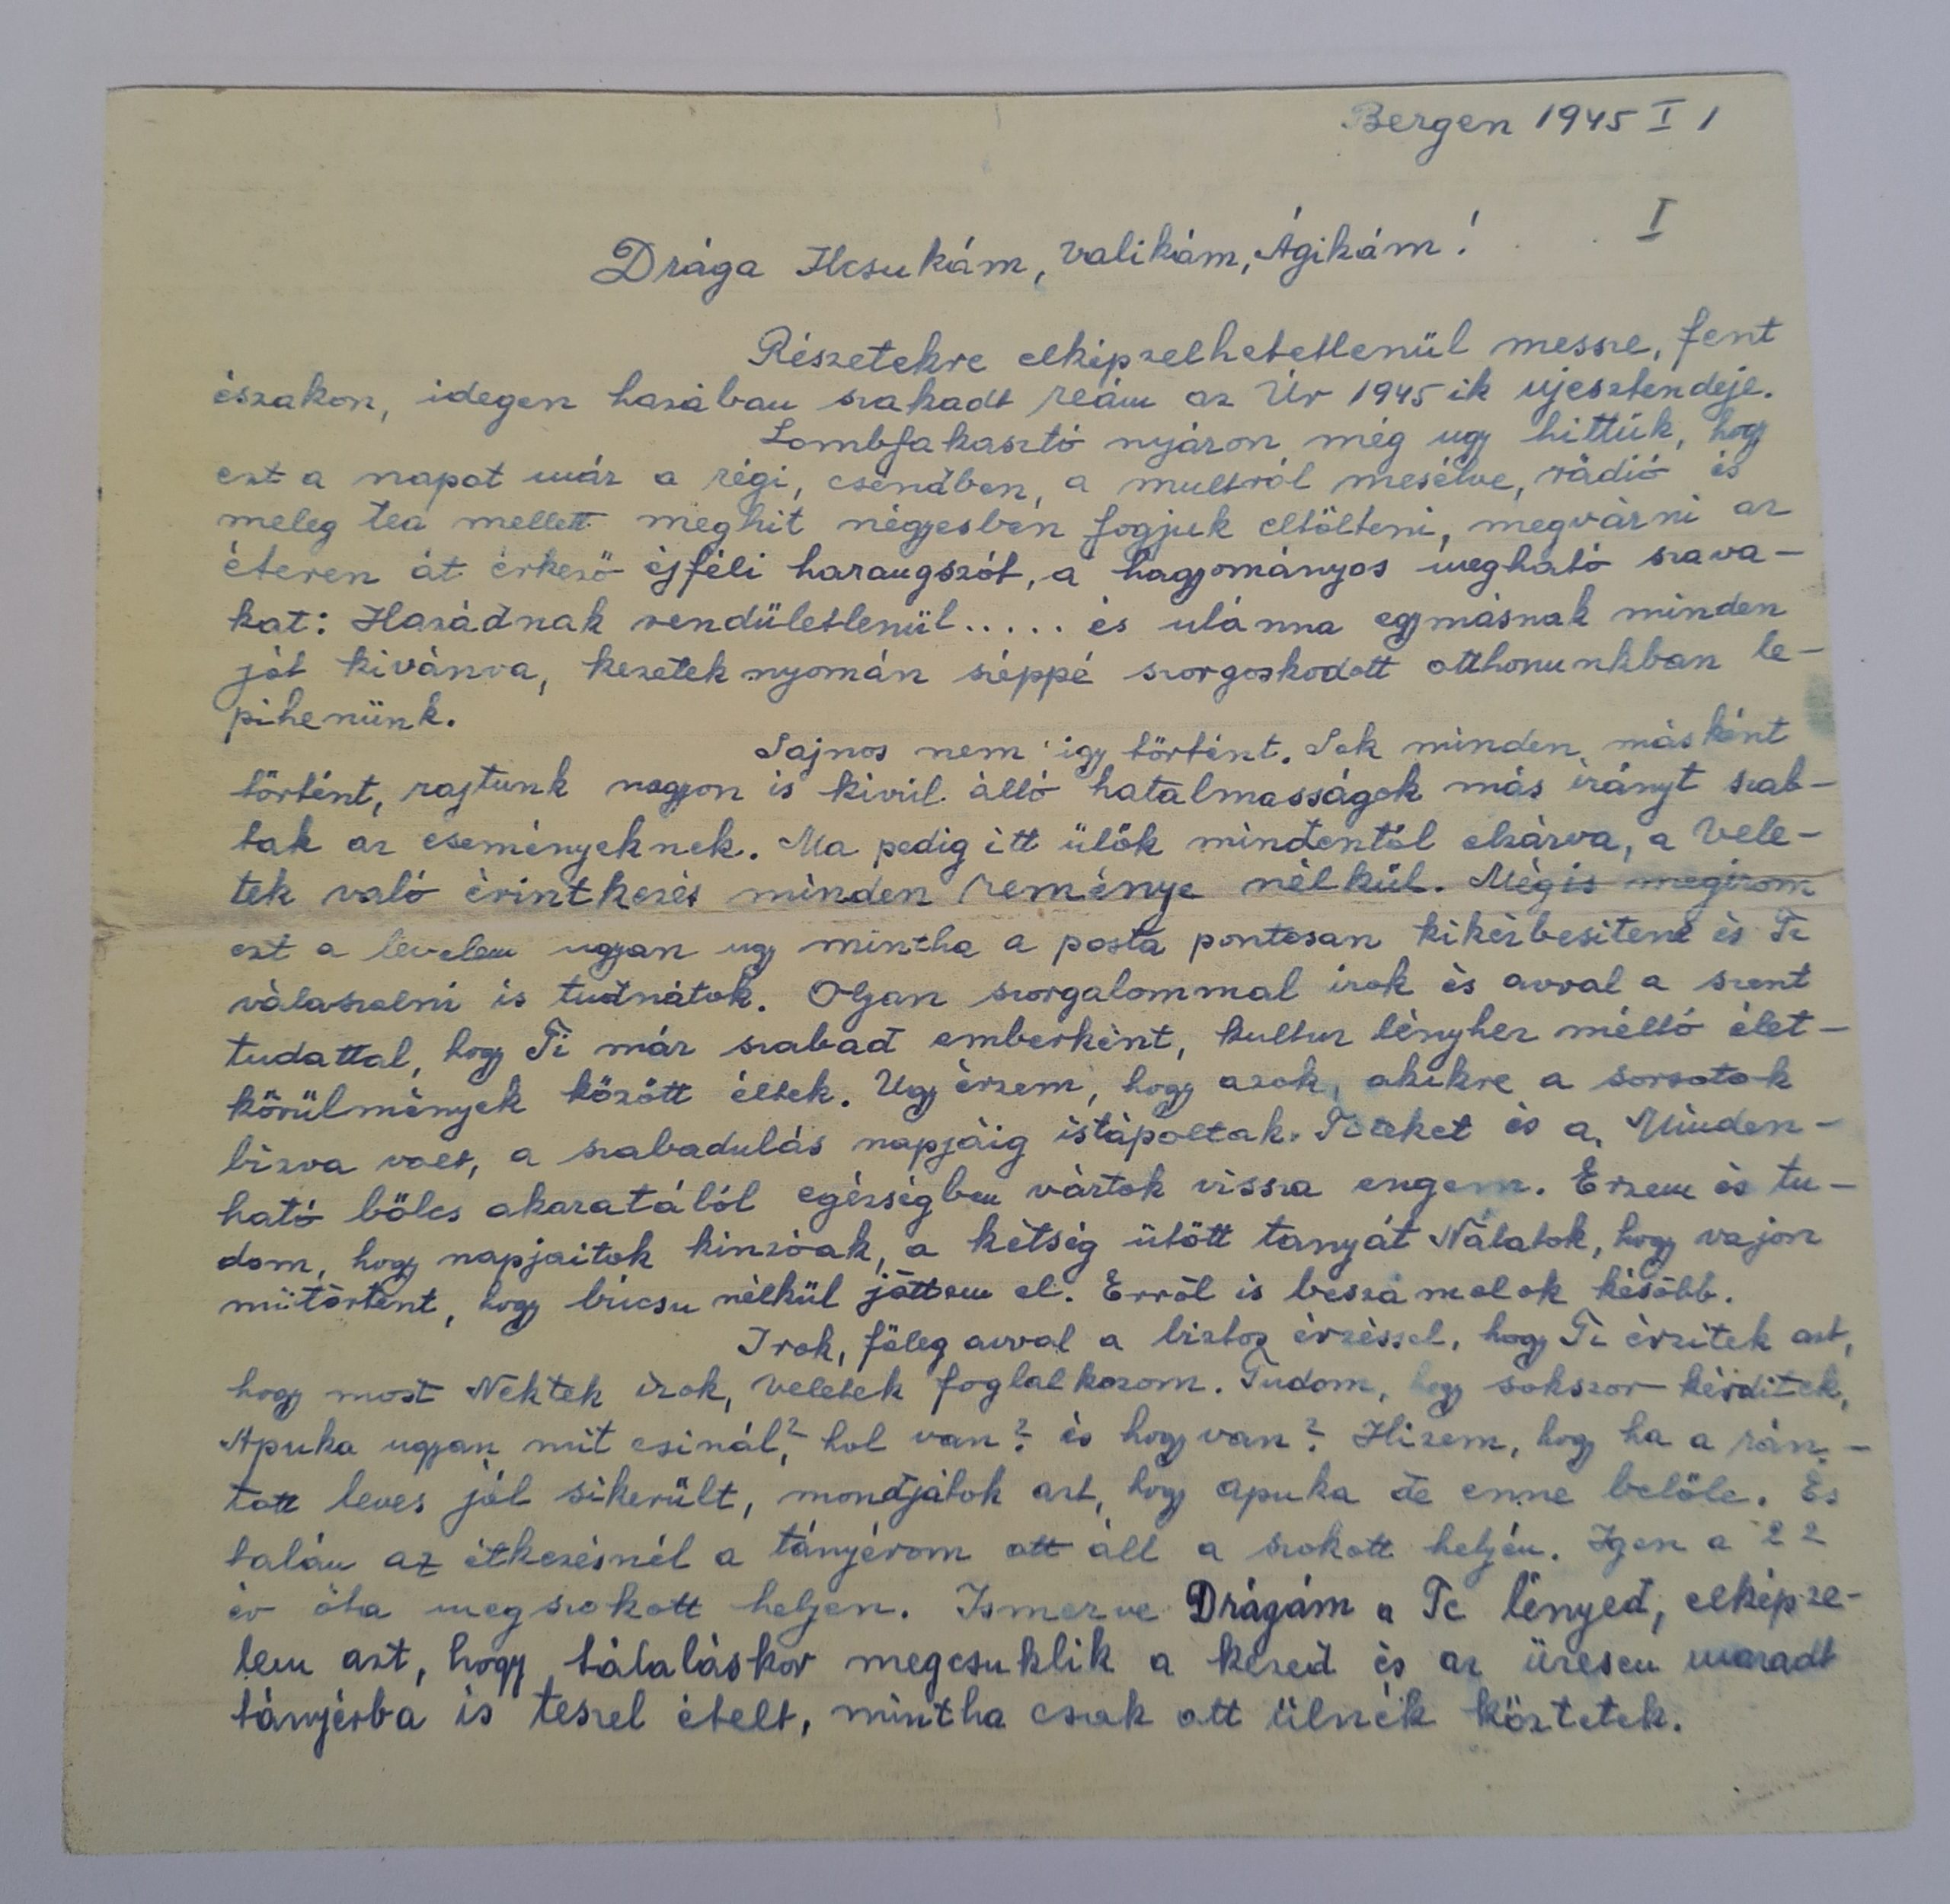 Bergen 1945 I 1
I
Drága Ilcsukám, Valikám, Ágikám!
Részetekre elképzelhetetlenül messze, fent
északon, idegen hazában szakadt reám az Úr 1945 ik ujesztendeje.
Lombfakasztó nyáron még ugy hittük, hogy
ezt a napot már a régi, csendben, a multról mesélve, rádió és
meleg tea mellett meghit négyesben fogjuk eltölteni, megvárni az
éteren át érkező éjféli harangszót, a hagyományos megható szava-
kat: Hazádnak rendületlenül..... és utánna egymásnak minden
jót kivánva, kezetek nyomán széppé szorgoskodott otthonunkban le-
pihenünk.
Sajnos nem igy történt. Sok minden másként
történt, rajtunk nagyon is kivül álló hatalmasságok más irányt szab-
tak az eseményeknek. Ma pedig itt ülök mindentől elzárva, a Vele-
tek való érintkezés minden reménye nélkül. Mégis megirom
ezt a levelem ugyan ugy mintha a posta pontosan kikézbesitené és Ti
válaszolni is tudnátok. Olyan szorgalommal irok és avval a szent
tudattal, hogy Ti már szabad emberként, kultur lényhez méltó élet-
körülmények között éltek. Ugy érzem, hogy azok, akikre a sorsotok
bizva volt, a szabadulás napjáig istápoltak Titeket és a Minden-
ható bölcs akaratából egészségben vártok vissza engem. Érzem és tu-
dom, hogy napjaitok kinzóak, a kétség ütött tanyát Nálatok, hogy vajon
mi történt, hogy bucsu nélkül jöttem el. Erről is beszámolok később.
Irok, főleg avval a biztos érzéssel, hogy Ti érzitek azt,
hogy most Nektek irok, Veletek foglalkozom. Tudom, hogy sokszor kérditek,
Apuka ugyan mit csinál? hol van? és hogy van? Hiszem, hogy ha a rán-
tott leves jól sikerült, mondjátok azt, hogy apuka de enne belőle. És
talán az étkezésnél a tányérom ott áll a szokott helyén. Igen a 22
év óta megszokott helyen. Ismerve Drágám a Te lényed, elképze-
lem azt, hogy tálaláskor megcsuklik a kezed és az üresen maradt
tányérba is teszel ételt, mintha csak ott ülnék köztetek.